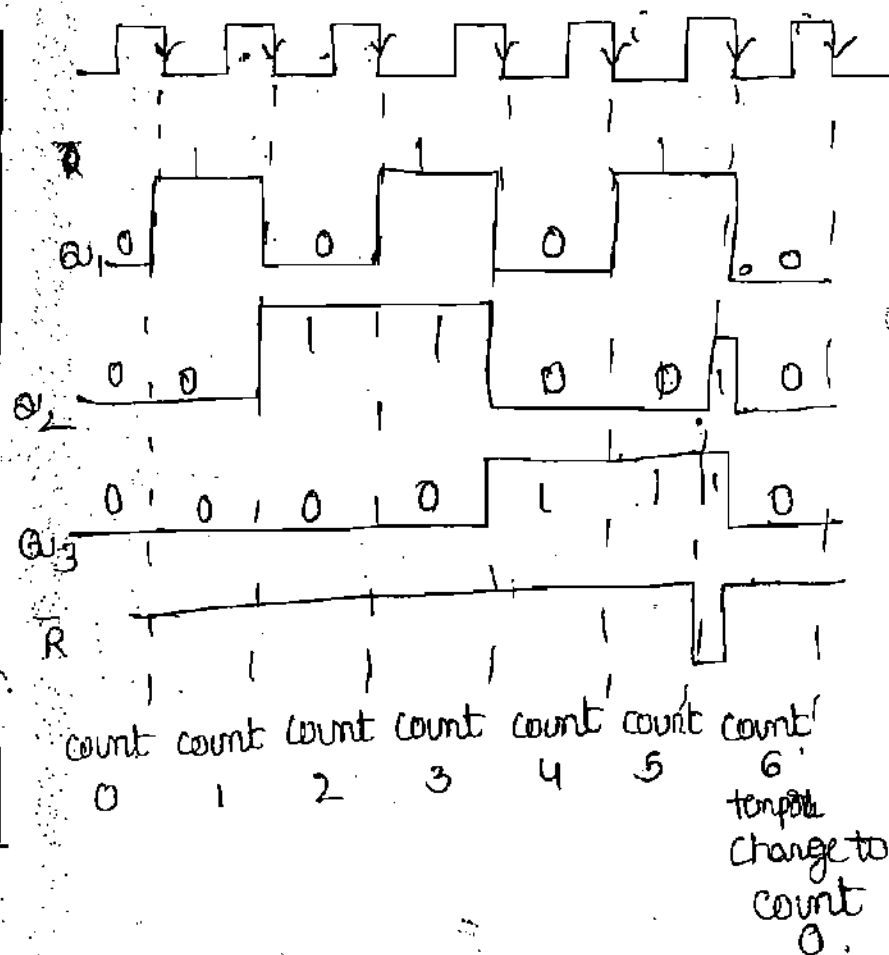 R
1 1 1
Q1 0 0 0 0
Q2 0 0 1 1 0 0 1 0
Q3 0 0 0 0 1 1 1 0
R̅
count count count count count count count
0 1 2 3 4 5 6
change to
count
0.